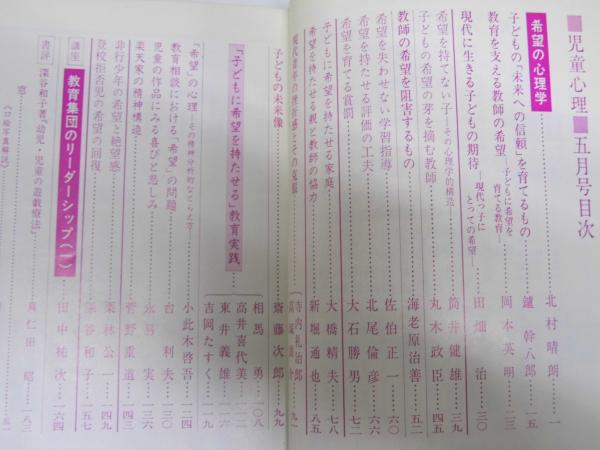 ■児童心理■五月号目次
希望の心理学……北村晴朗…一
子どもの「未来への信頼」を育てるもの……鑪幹八郎…一五
教育を支える教師の希望―子どもに希望を育てる教育―……岡本英明…二三
現代に生きる子どもの期待―現代っ子にとっての希望―……田畑治…三〇
希望を持てない子―その心理学的構造―……筒井健雄…三九
子どもの希望の芽を摘む教師……丸木政臣…四五
教師の希望を阻害するもの……海老原治善…五二
希望を失わせない学習指導……佐伯正一…六〇
希望を持たせる評価の工夫……北尾倫彦…六六
希望を育てる賞罰……大石勝男…七二
子どもに希望を持たせる家庭……大橋精夫…七八
希望を持たせる親と教師の協力……新堀通也…八五
子どもの未来像……齋藤次郎…九九
「子どもに希望を持たせる」教育実践
相馬勇…一〇八
高井喜代美…一一二
東井義雄…一一六
吉岡たすく…一一九
「希望」の心理―その精神分析的なとらえ方―……小此木啓吾…一二四
教育相談における「希望」の問題……台利夫…一三〇
児童の作品にみる喜びと悲しみ……永易実…一三六
楽天家の精神構造……菅野重道…一四三
非行少年の希望と絶望感……栗林公一…一四
登校拒否児の希望の回復……深谷和子…一五七
講座 教育集団のリーダーシップ(一)……田中祐次…一六四
書評 深谷和子著『幼児・児童の遊戯療法』……真仁田昭…一八三
窓
《口絵写真解説》